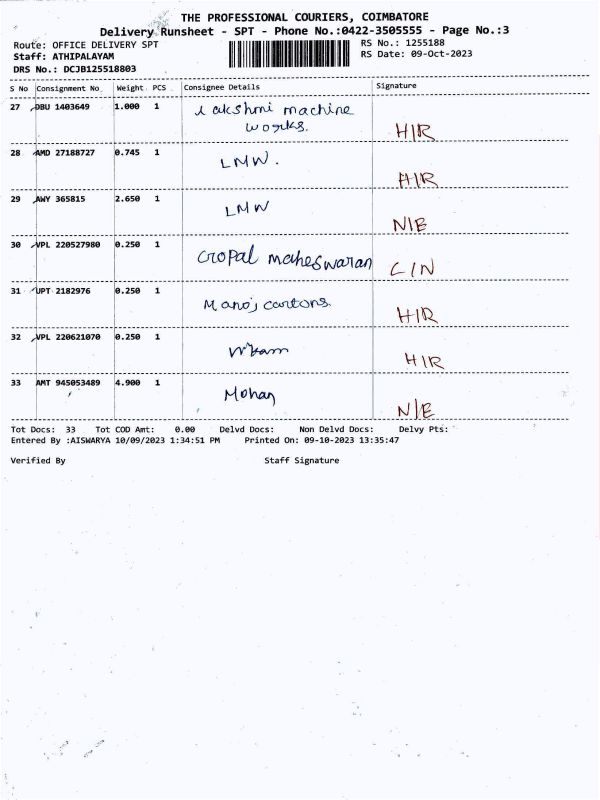 THE PROFESSIONAL COURIERS, COIMBATORE
Delivery Runsheet - SPT - Phone No.:0422-3505555 - Page No.:3
Route: OFFICE DELIVERY SPT
Staff: ATHIPALAYAM
DRS No.: DCJB125518803
RS No.: 1255188
RS Date: 09-Oct-2023
S No Consignment No Weight PCS Consignee Details Signature
27 DBU 1403649 1.000 1 Lakshmi machine
works. HIR
28 AMD 27188727 0.745 1 LMW. HIR
29 AWY 365815 2.650 1 LMW N/E
30 VPL 220527980 0.250 1 Gopal maheswaran C/N
31 UPT 2182976 0.250 1 Manoj cartons. HIR
32 VPL 220621070 0.250 1 HIR
33 AMT 945053489 4.900 1 Mohan N/E
Tot Docs: 33 Tot COD Amt: 0.00 Delvd Docs: Non Delvd Docs: Delvy Pts:
Entered By :AISWARYA 10/09/2023 1:34:51 PM Printed On: 09-10-2023 13:35:47
Verified By Staff Signature